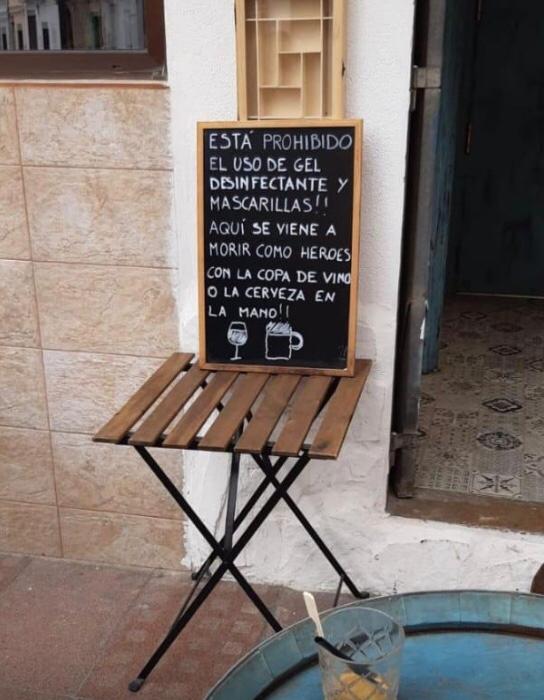 ESTÁ PROHIBIDO
EL USO DE GEL
DESINFECTANTE Y
MASCARILLAS!!
AQUÍ SE VIENE A
MORIR COMO HEROES
CON LA COPA DE VINO
O LA CERVEZA EN
LA MANO!!